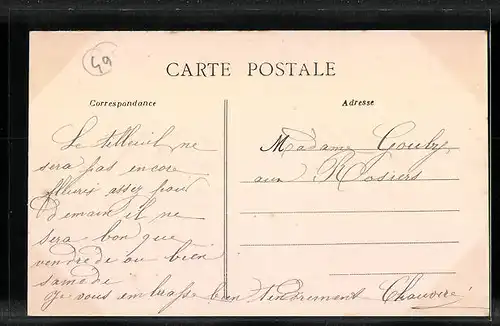 49
CARTE POSTALE
Correspondance
Adresse
Le tilleuil ne
sera pas encore
fleuri assez pour
demain il ne
sera bon que
vendredi ou bien
samedi
je vous embrasse bien tendrement Chauviré
Madame Gouby
aux Rosiers